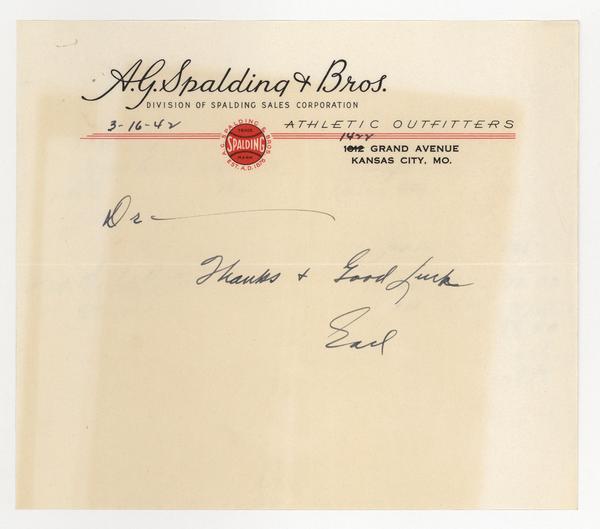 A.G. Spalding & Bros.
DIVISION OF SPALDING SALES CORPORATION
3-16-42
ATHLETIC OUTFITTERS
A.G. SPALDING & BROS
TRADE
SPALDING
MARK
EST. A.D. 1876
1422
1012 GRAND AVENUE
KANSAS CITY, MO.
Dr
Thanks + Good Luck
Earl